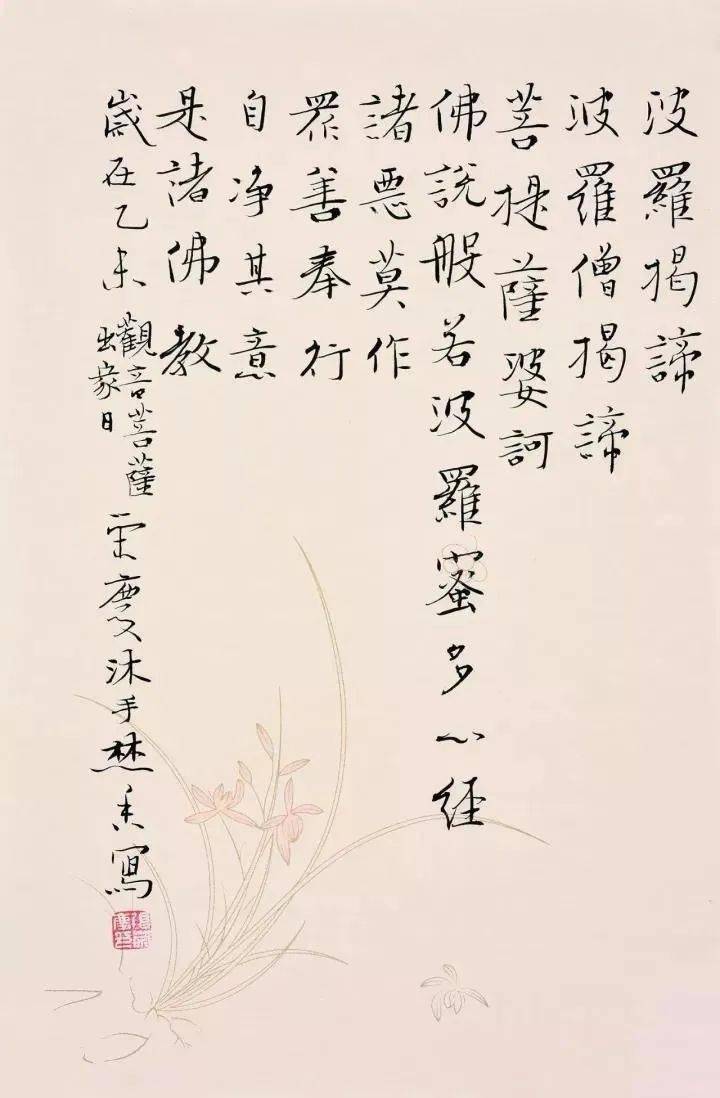 波羅揭諦
波羅僧揭諦
菩提薩婆訶
佛說般若波羅蜜多心経
諸惡莫作
眾善奉行
自净其意
是諸佛教
歲在乙未 觀音菩薩
出家日
慶沐手焚香寫